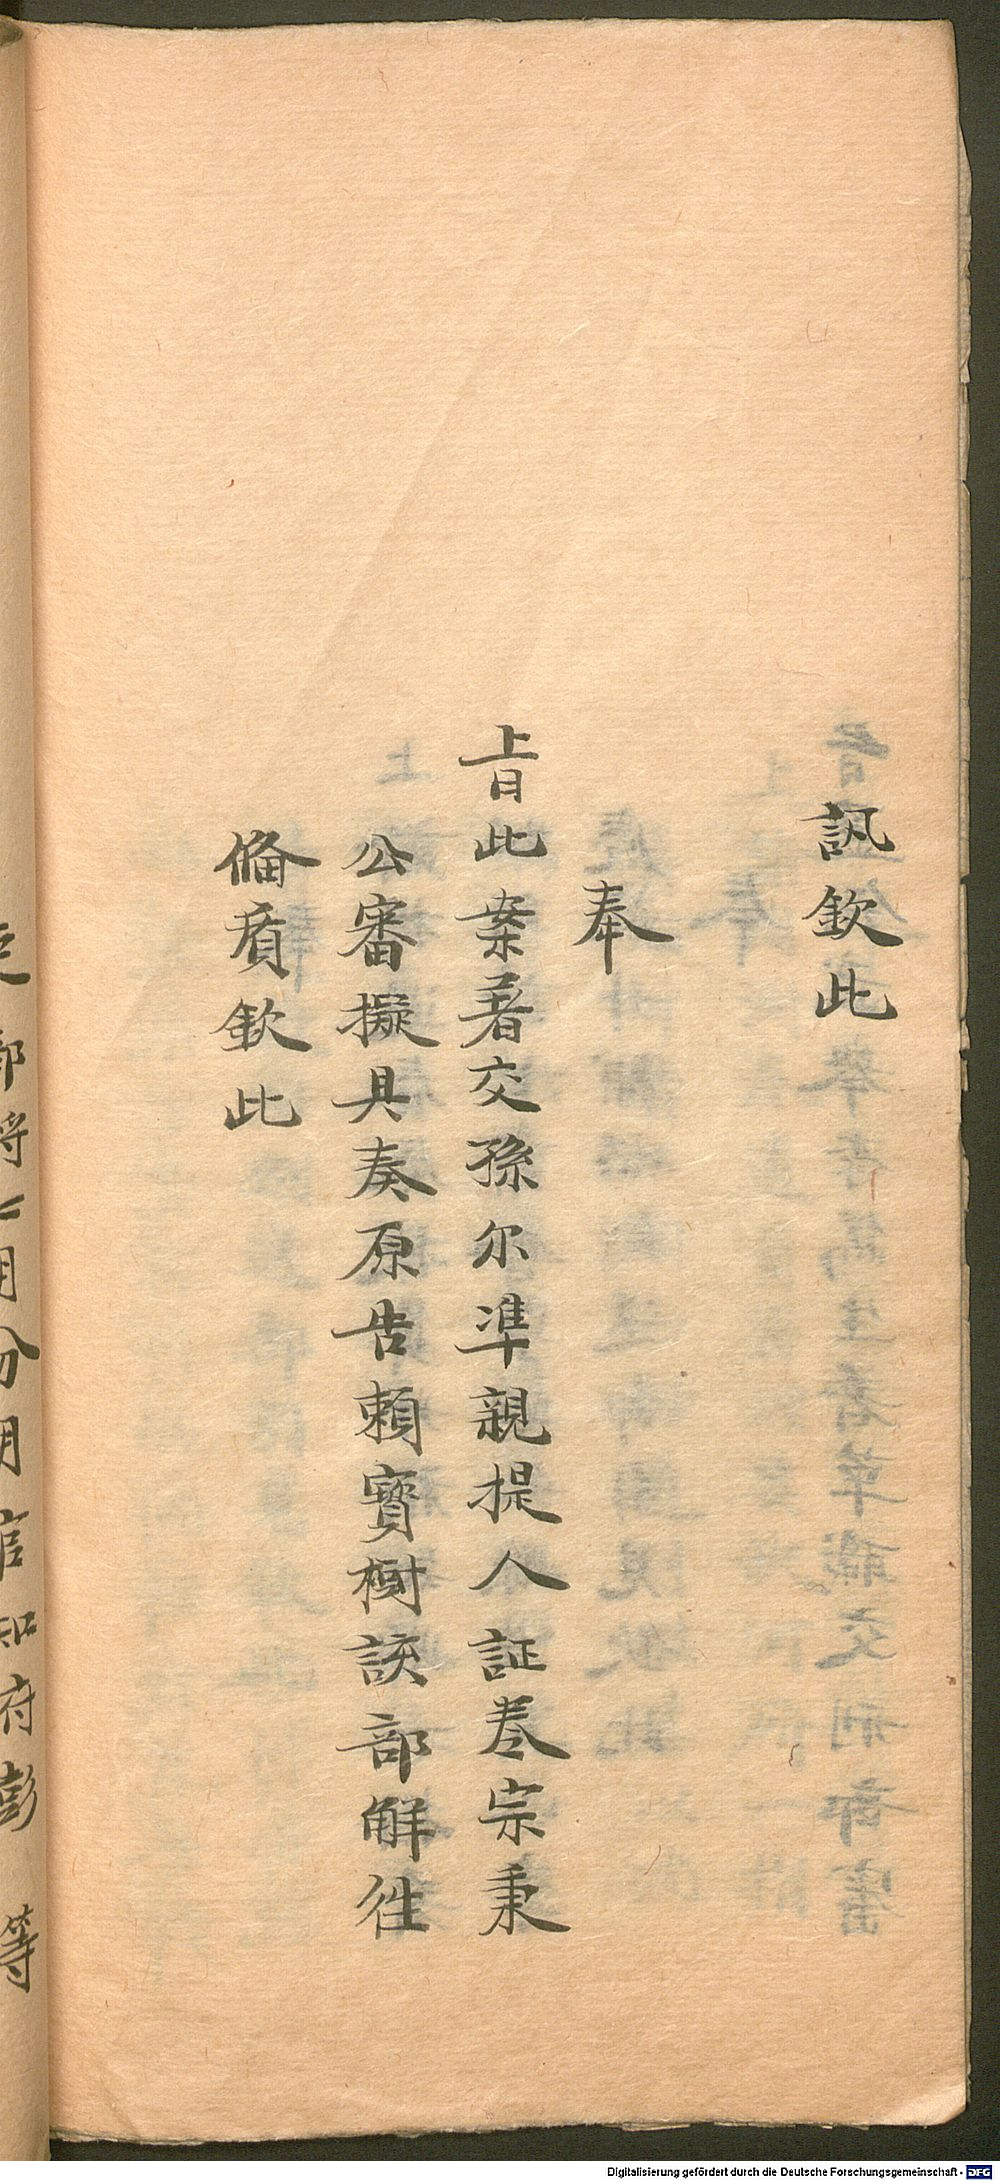 訊欽此
奉
上旨此案著交孫尔準親提人証卷宗秉
公審擬具奏原告賴寶樹該部解往
偹質欽此
Digitalisierung gefördert durch die Deutsche Forschungsgemeinschaft - DFG